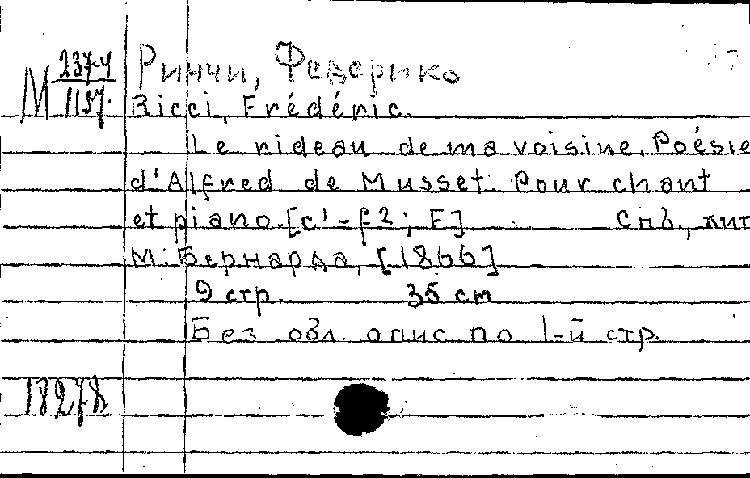 М 237-4
1157.
Риччи, Федерико
Ricci, Frédéric.
Le rideau de ma voisine. Poésie
d'Alfred de Musset. Pour chant
et piano. [c'-f2; F] Спб., лит.
М. Бернарда, [1866]
9 стр. 35 cm
Без обл. опис по 1-й стр.